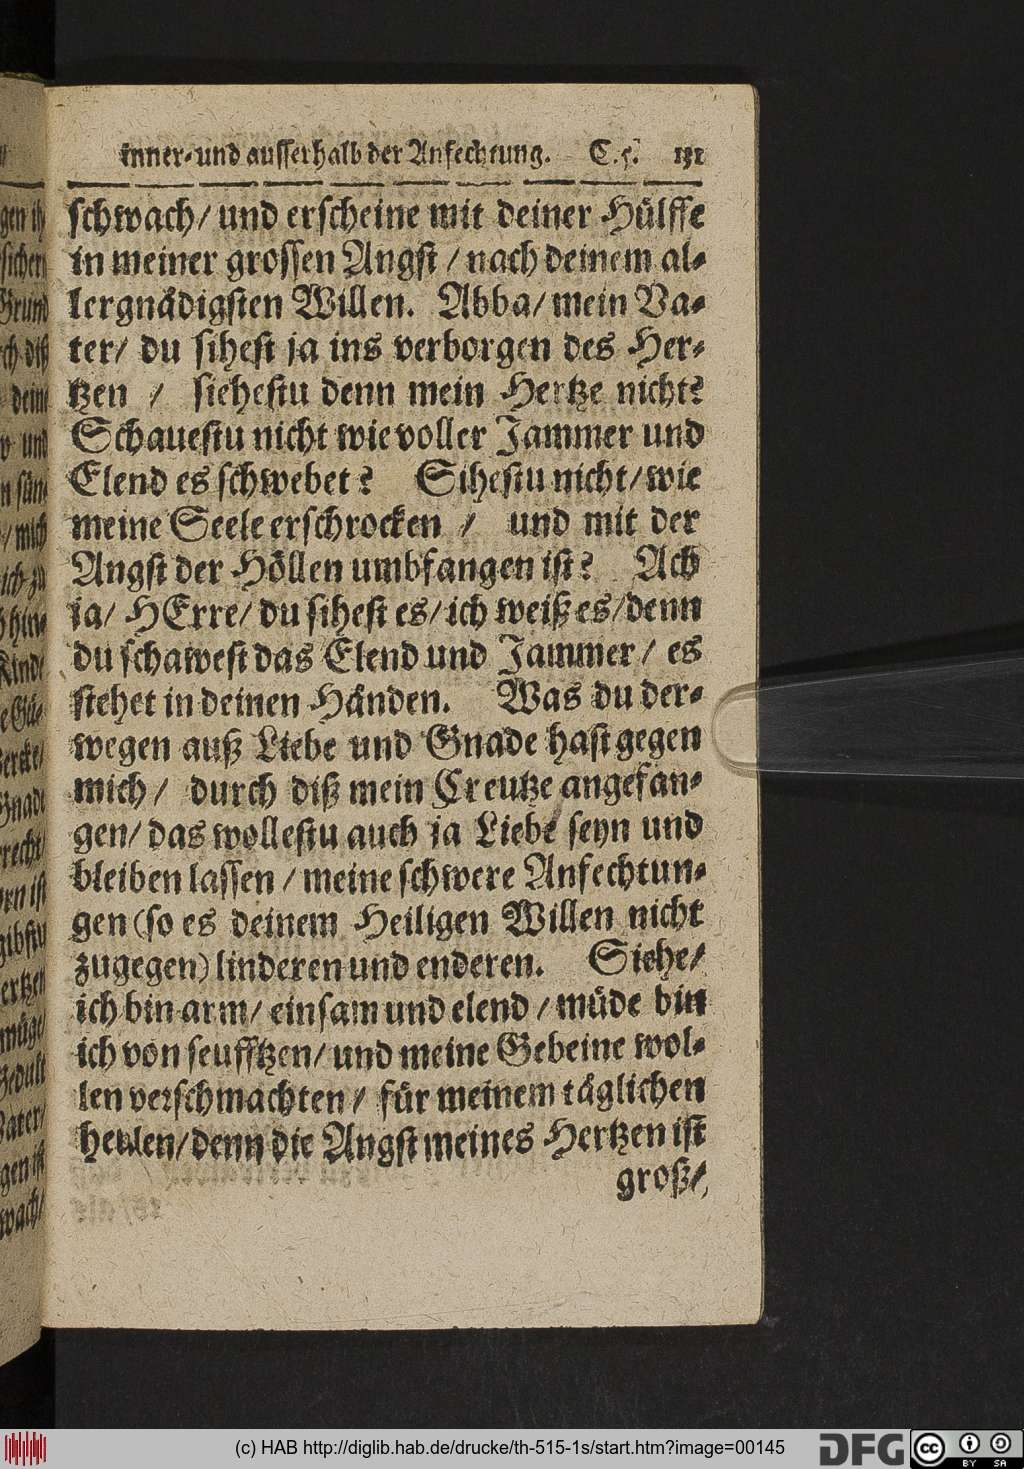 inner-und ausserhalb der Anfechtung. C. 5. 131
schwach/ und erscheine mit deiner Hülffe
in meiner grossen Angst / nach deinem al-
lergnädigsten Willen. Abba/ mein Va-
ter/ du sihest ja ins verborgen des Her-
tzen / siehestu denn mein Hertze nicht?
Schauestu nicht wie voller Jammer und
Elend es schwebet? Sihestu nicht/ wie
meine Seele erschrocken / und mit der
Angst der Höllen umbfangen ist? Ach
ja/ HErre/ du sihest es/ ich weiß es/ denn
du schawest das Elend und Jammer/ es
stehet in deinen Händen. Was du der-
wegen auß Liebe und Gnade hast gegen
mich/ durch diß mein Creutze angefan-
gen/ das wollestu auch ja Liebe seyn und
bleiben lassen / meine schwere Anfechtun-
gen (so es deinem Heiligen Willen nicht
zugegen) linderen und enderen. Siehe/
ich bin arm/ einsam und elend / müde bin
ich von seufftzen/ und meine Gebeine wol-
len verschmachten/ für meinem täglichen
heulen/ denn die Angst meines Hertzen ist
groß/
(c) HAB http://diglib.hab.de/drucke/th-515-1s/start.htm?image=00145
DFG
cc BY SA